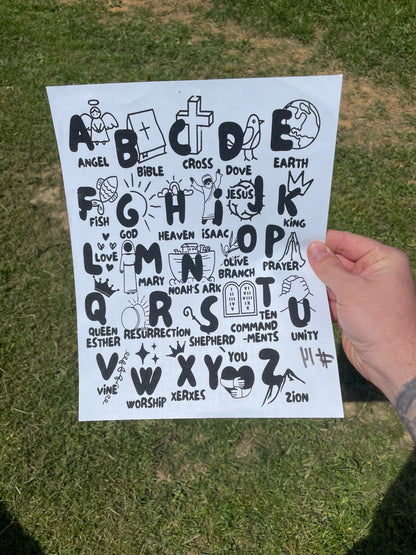 A B C D E
ANGEL BIBLE CROSS DOVE EARTH
F G H i J K
FISH GOD HEAVEN iSAAC JESUS KING
L M N O P
LOVE MARY NOAH'S ARK OLIVE BRANCH PRAYER
Q R S T U
QUEEN ESTHER RESURRECTION SHEPHERD TEN COMMAND -MENTS UNITY
V W X Y Z
VINE WORSHIP XERXES YOU ZION